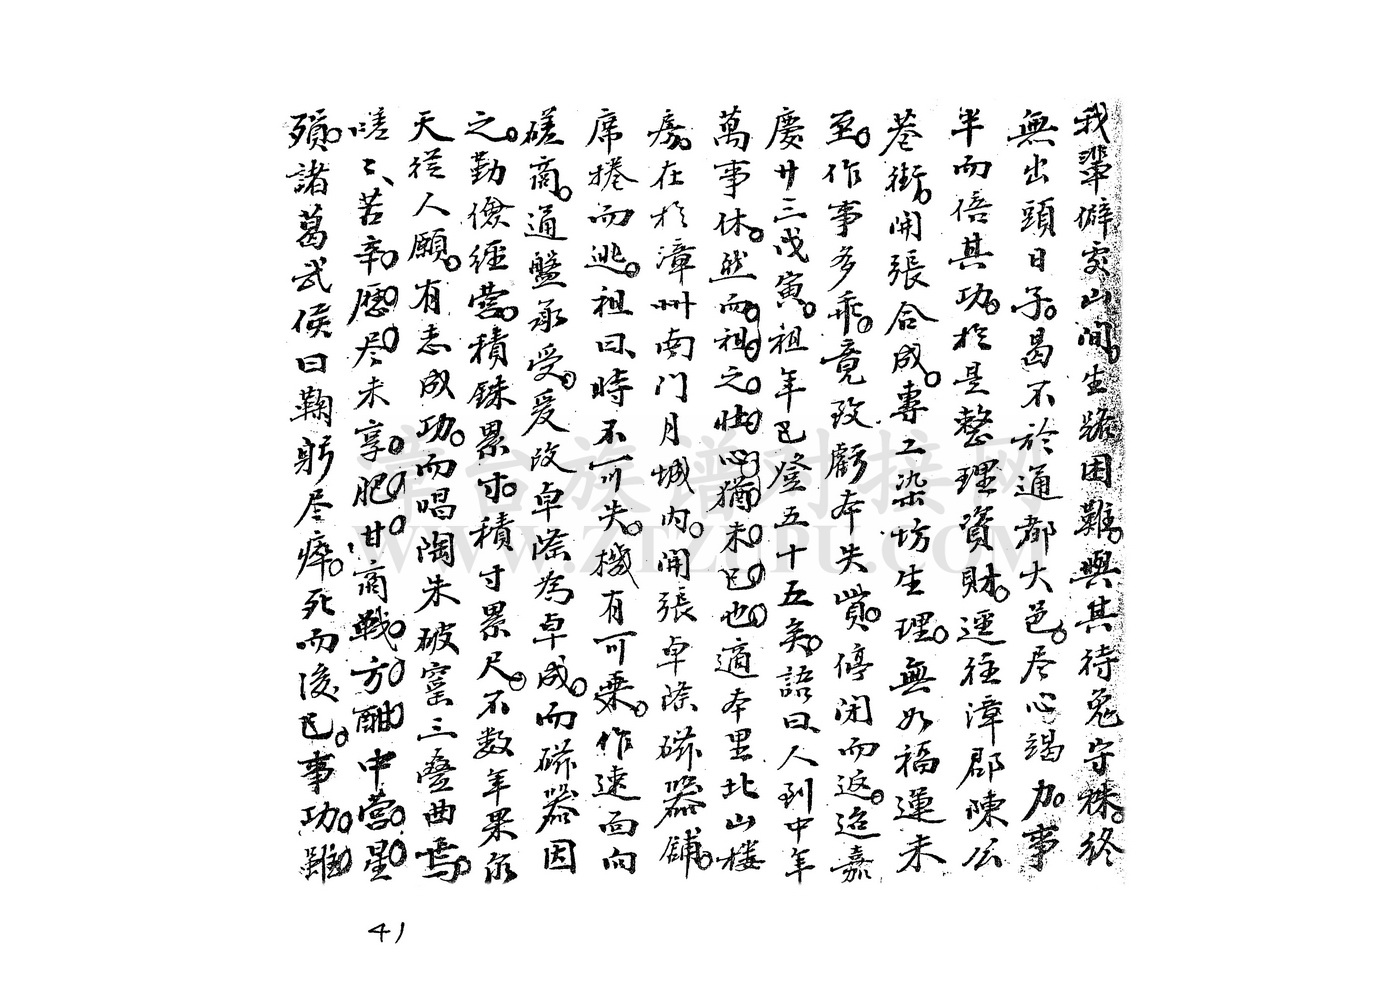 我輩僻處山間。生路困難。與其待兔守株。終
無出頭日子。曷不於通都大邑。尽心竭力。事
半而倍其功。於是整理資財。逕往漳郡陳公
巷街。開張合成。專工染坊生理。無如福運未
至。作事多乖。竟致虧本失貲。停闭而返。迨嘉
慶廿三戊寅。祖年已登五十五矣。語曰、人到中年
萬事休。然而祖之壯心猶未已也。適本里北山楼
房。在於漳州南门月城内。開張卓隆磁器舖。
席捲而逃。祖曰、時不可失。機有可乘。作速面向
磋商。通盤承受。爰改卓隆為卓成。而磁器因
之。勤儉經营。積銖累寸。積寸累尺。不数年果承
天從人願。有志成功。而唱陶朱破窰三叠曲焉。
嗟々、苦辛歷尽。未享肥甘。商戰方酣。中营星
殞。諸葛武侯曰鞠躬尽瘁。死而後已。事功雖
41
常台族谱对接网
WWW.ZTZUPU.COM